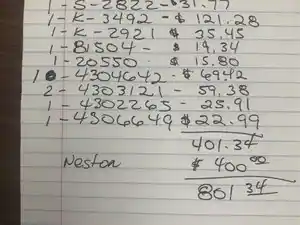 1 - S-2822 - $31.77
1 - K-3492 - $ 121.28
1 - K-2921 $ 35.45
1 - 81504 - $ 19,34
1 - 20550 $ 15.80
1 - 4304642 - $ 6942
2 - 4303121 - 59,38
1 - 4302265 - 25.91
1 - 4306649 $ 22.99
401.34
Neston $ 400 00
801 34